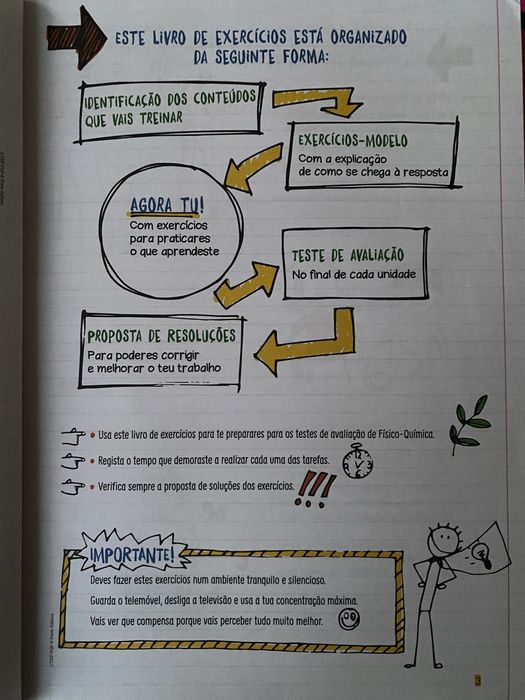 ESTE LIVRO DE EXERCÍCIOS ESTÁ ORGANIZADO
DA SEGUINTE FORMA:
IDENTIFICAÇÃO DOS CONTEÚDOS
QUE VAIS TREINAR
EXERCÍCIOS-MODELO
Com a explicação
de como se chega à resposta
AGORA TU!
Com exercícios
para praticares
o que aprendeste
TESTE DE AVALIAÇÃO
No final de cada unidade
PROPOSTA DE RESOLUÇÕES
Para poderes corrigir
e melhorar o teu trabalho
• Usa este livro de exercícios para te preparares para os testes de avaliação de Físico-Química.
• Regista o tempo que demoraste a realizar cada uma das tarefas.
• Verifica sempre a proposta de soluções dos exercícios.
!!!
IMPORTANTE!
Deves fazer estes exercícios num ambiente tranquilo e silencioso.
Guarda o telemóvel, desliga a televisão e usa a tua concentração máxima.
Vais ver que compensa porque vais perceber tudo muito melhor.
3